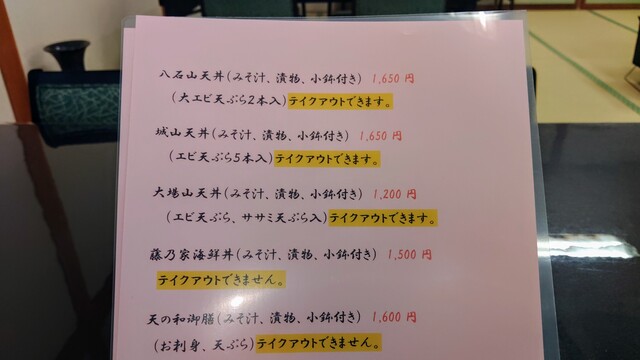 八石山天丼(みそ汁、漬物、小鉢付き) 1,650円
(大エビ天ぷら2本入)テイクアウトできます。
城山天丼(みそ汁、漬物、小鉢付き) 1,650円
(エビ天ぷら5本入)テイクアウトできます。
大場山天丼(みそ汁、漬物、小鉢付き) 1,200円
(エビ天ぷら、ササミ天ぷら入)テイクアウトできます。
藤乃家海鮮丼(みそ汁、漬物、小鉢付き) 1,500円
テイクアウトできません。
天の和御膳(みそ汁、漬物、小鉢付き) 1,600円
(お刺身、天ぷら)テイクアウトできません。